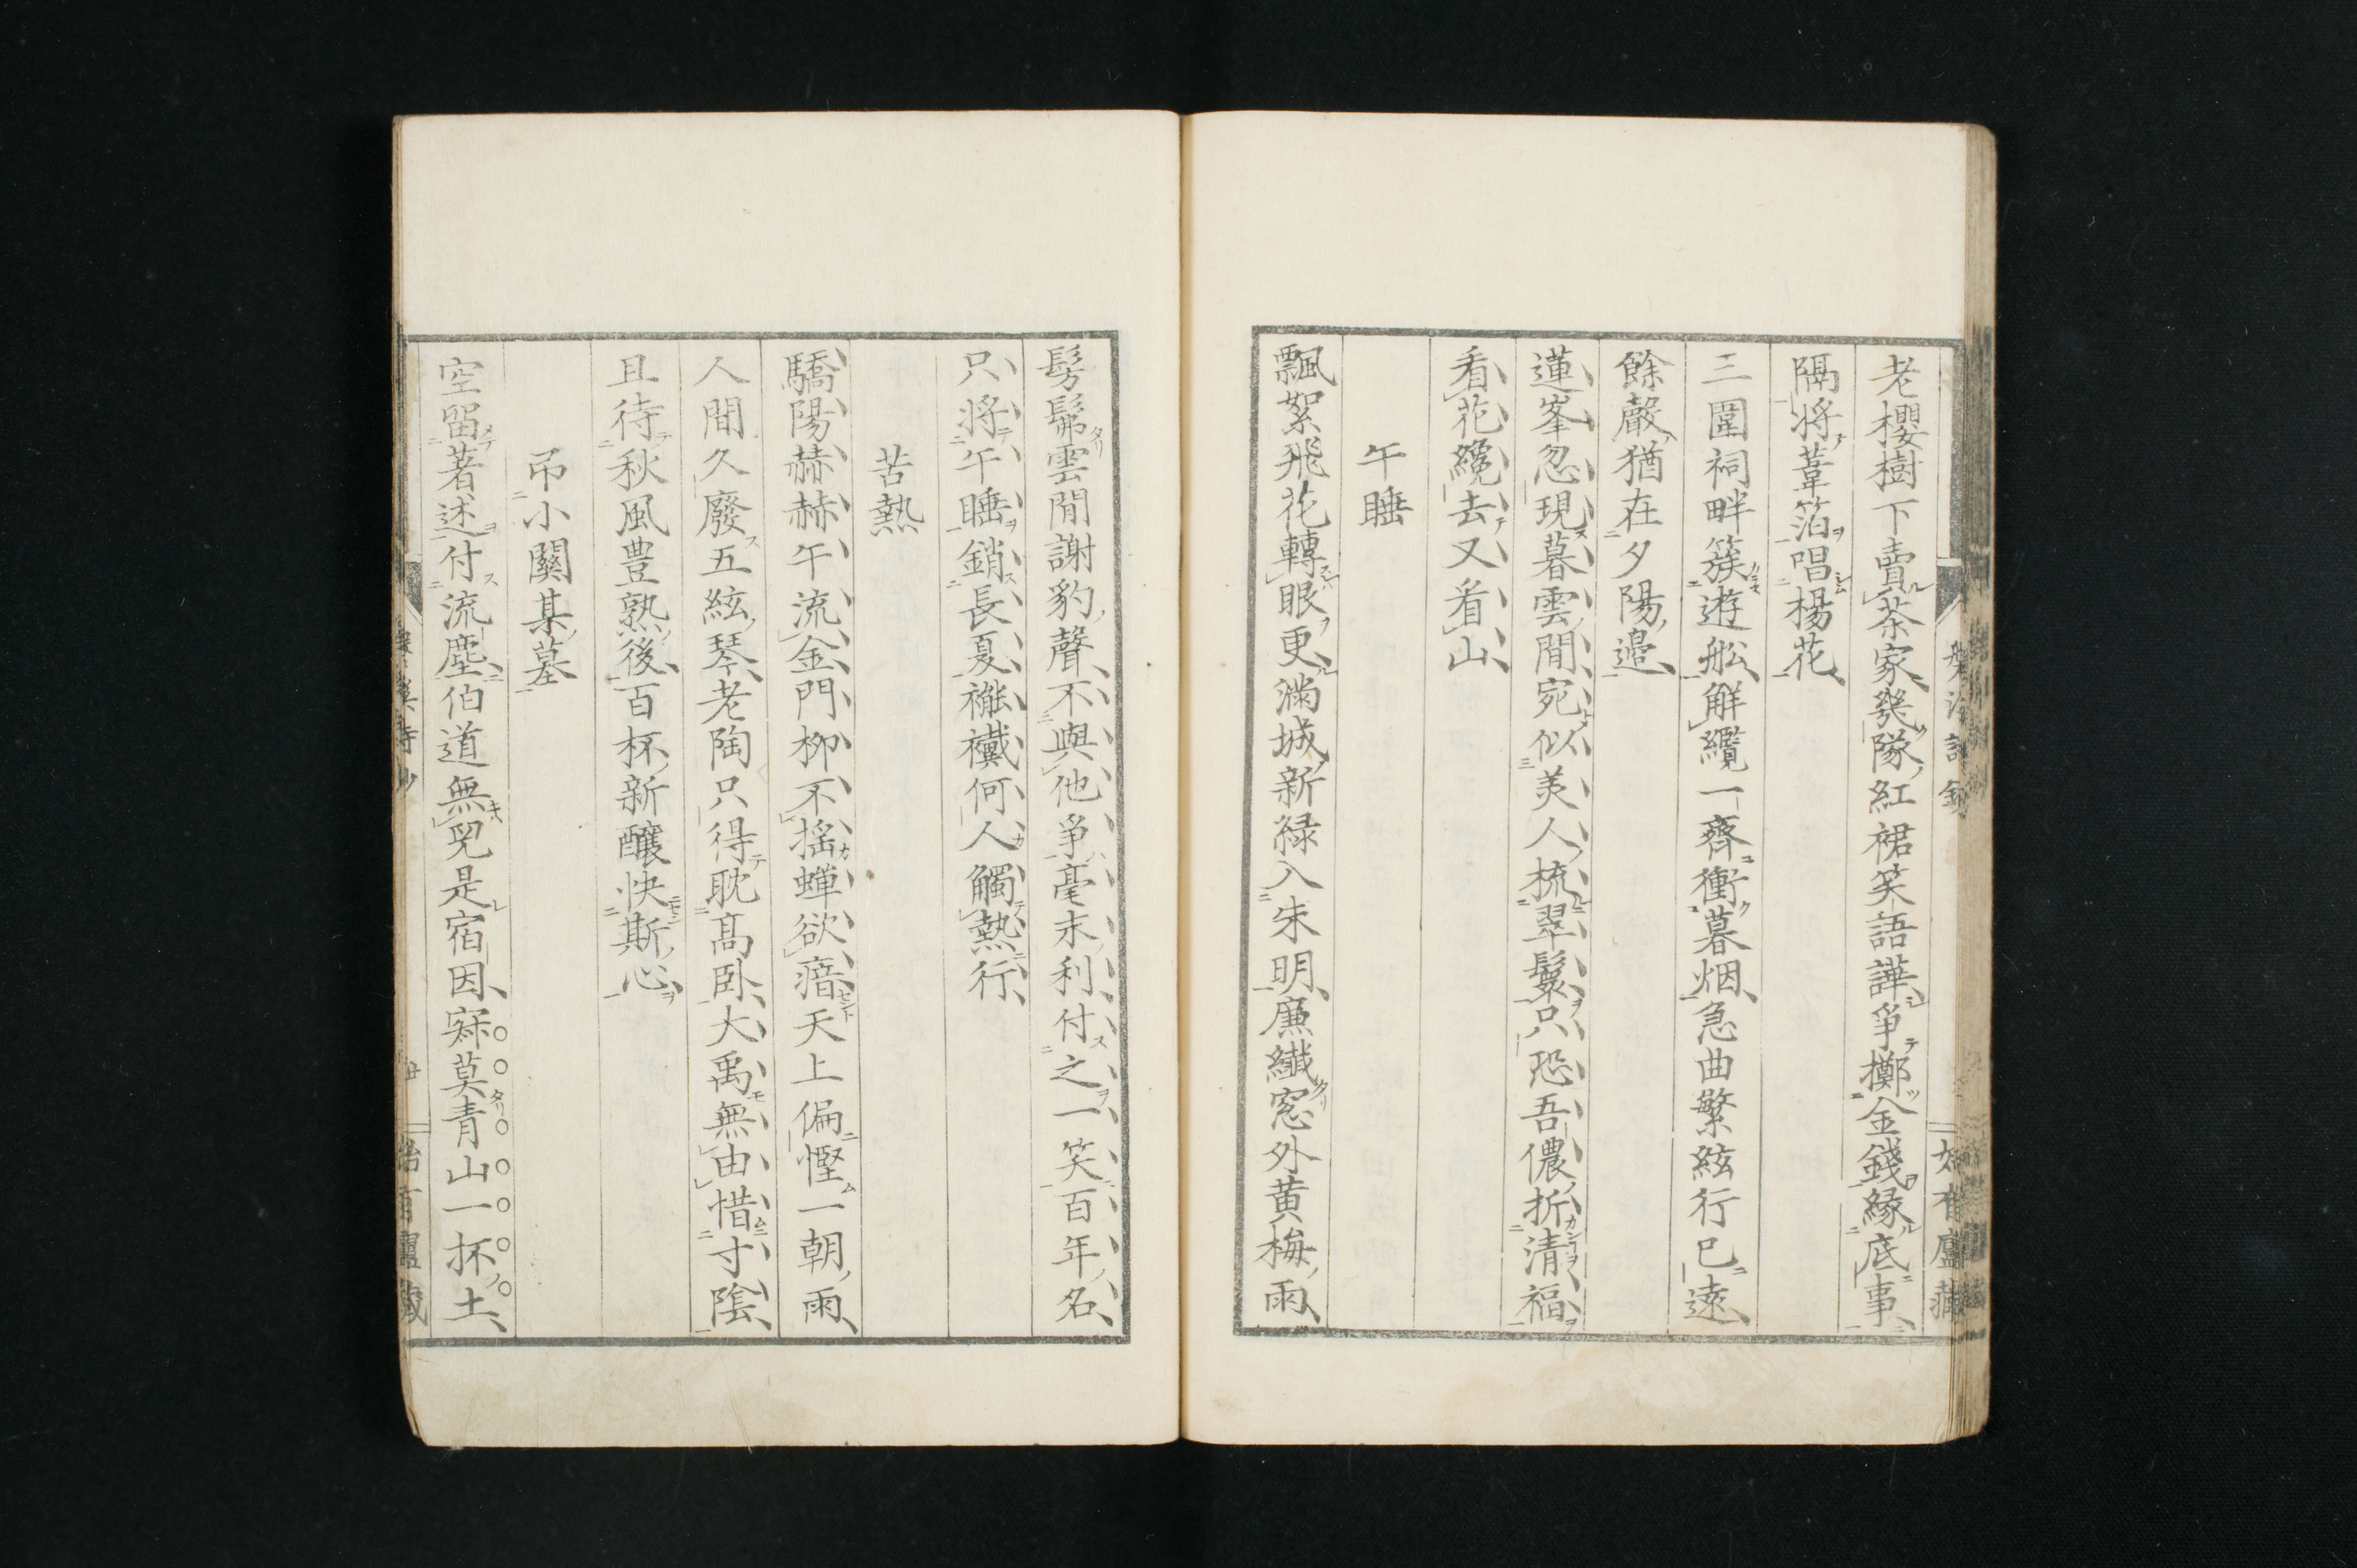 老櫻樹下賣茶家幾隊紅裙笑語譁爭擲金錢緣底事
隔將葦箔唱楊花
三圍祠畔簇遊船解纜一齊衝暮烟急曲繁絃行已遠
餘聲猶在夕陽邉
蓮峯忽現暮雲間宛似美人梳翠鬟只恐吾儂折清福
看花纔去又看山
午睡
飄絮飛花轉眼更滿城新緑入朱明廉纖窓外黄梅雨
髣髴雲間謝豹聲不與他爭毫末利付之一笑百年名
只將午睡銷長夏襳襶何人觸熱行
苦熱
驕陽赫赫午流金門柳不搖蟬欲瘖天上偏慳一朝雨
人間久廢五絃琴老陶只得耽髙卧大禹無由惜寸陰
且待秋風豊熟後百杯新釀快斯心
吊小關某墓
空留著述付流塵伯道無兒是宿因寂莫青山一抔土